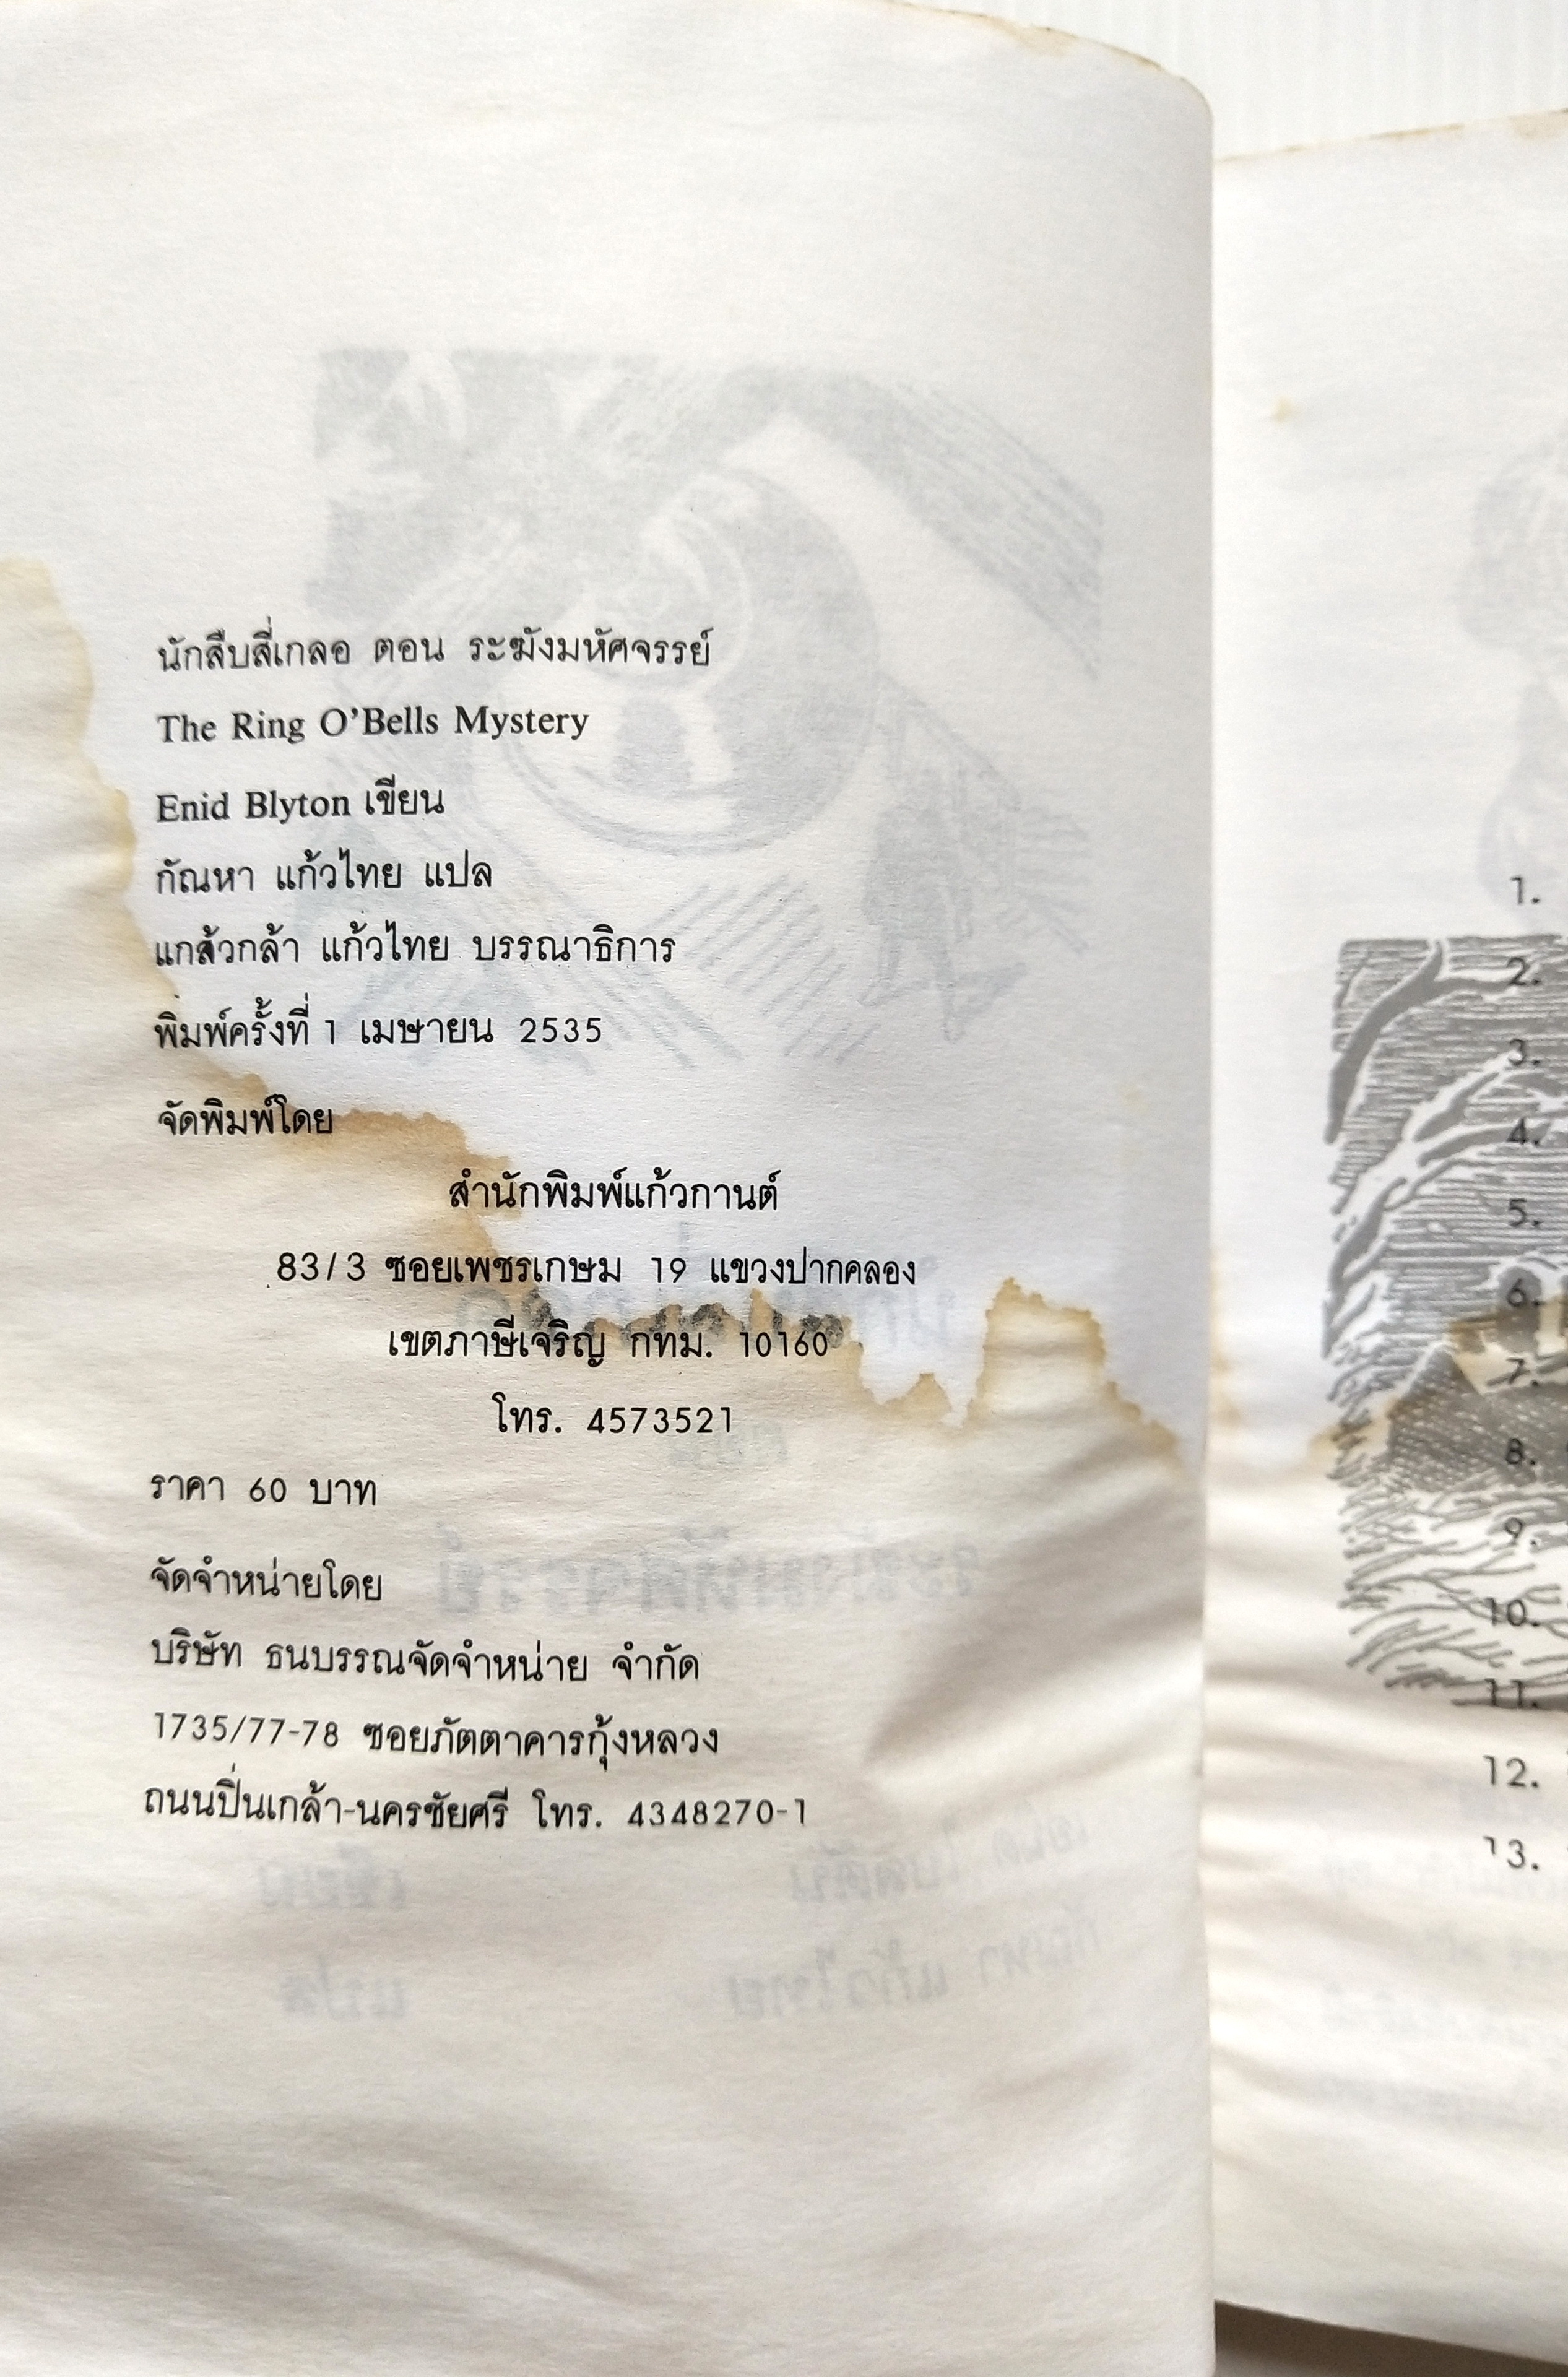 นักสืบสี่เกลอ ตอน ระฆังมหัศจรรย์
The Ring O'Bells Mystery
Enid Blyton เขียน
กัณหา แก้วไทย แปล
แกล้วกล้า แก้วไทย บรรณาธิการ
พิมพ์ครั้งที่ 1 เมษายน 2535
จัดพิมพ์โดย
สำนักพิมพ์แก้วกานต์
83/3 ซอยเพชรเกษม 19 แขวงปากคลอง
เขตภาษีเจริญ กทม. 10160
โทร. 4573521
ราคา 60 บาท
จัดจำหน่ายโดย
บริษัท ธนบรรณจัดจำหน่าย จำกัด
1735/77-78 ซอยภัตตาคารกุ้งหลวง
ถนนปิ่นเกล้า-นครชัยศรี โทร. 4348270-1
1.
2.
3.
4.
5.
6.
7.
8.
9.
10.
11.
12.
13.